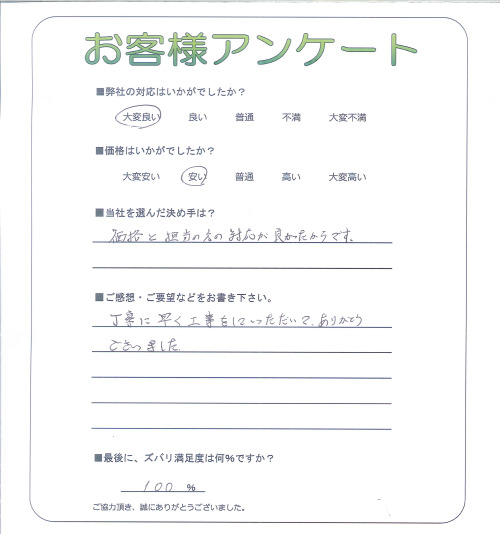 お客様アンケート
■弊社の対応はいかがでしたか？
大変良い 良い 普通 不満 大変不満
■価格はいかがでしたか？
大変安い 安い 普通 高い 大変高い
■当社を選んだ決め手は？
価格と担当の方の対応が良かったからです。
■ご感想・ご要望などをお書き下さい。
丁寧に早く工事をしていただいて、ありがとう
ございました
■最後に、ズバリ満足度は何％ですか？
100 ％
ご協力頂き、誠にありがとうございました。